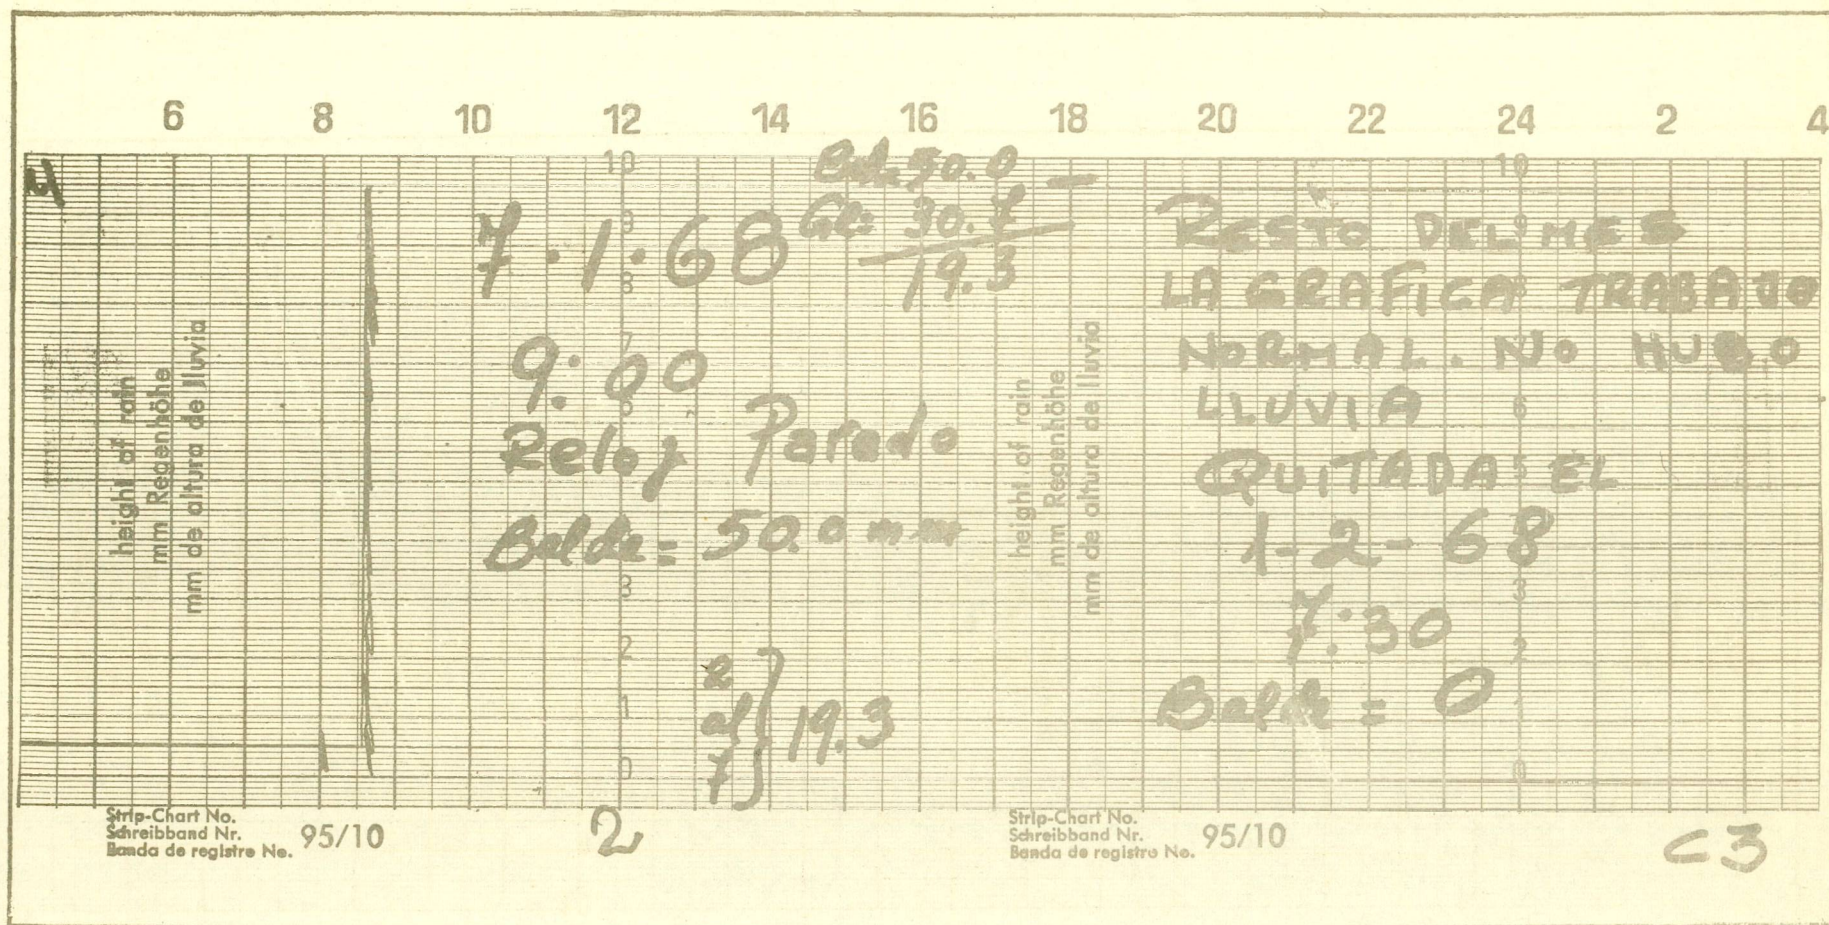 6 8 10 12 14 16 18 20 22 24 2 4
4
10 9 8 7 6 3 2 1 0
height of rain
mm Regenhöhe
mm de altura de lluvia
7.1.68
Bal. 50.0 -
Gr: 30.7
19.3
9:00
Reloj Parado
Balde = 50.0 mm
2
al
7
} 19.3
height of rain
mm Regenhöhe
mm de altura de lluvia
10 9 8 6 5 3 2 1 0
RESTO DEL MES
LA GRAFICA TRABAJO
NORMAL. NO HUBO
LLUVIA
QUITADA EL
1-2-68
7:30
Balde = 0
Strip-Chart No.
Schreibband Nr. 95/10
Banda de registro No.
2
Strip-Chart No.
Schreibband Nr. 95/10
Banda de registro No.
C3